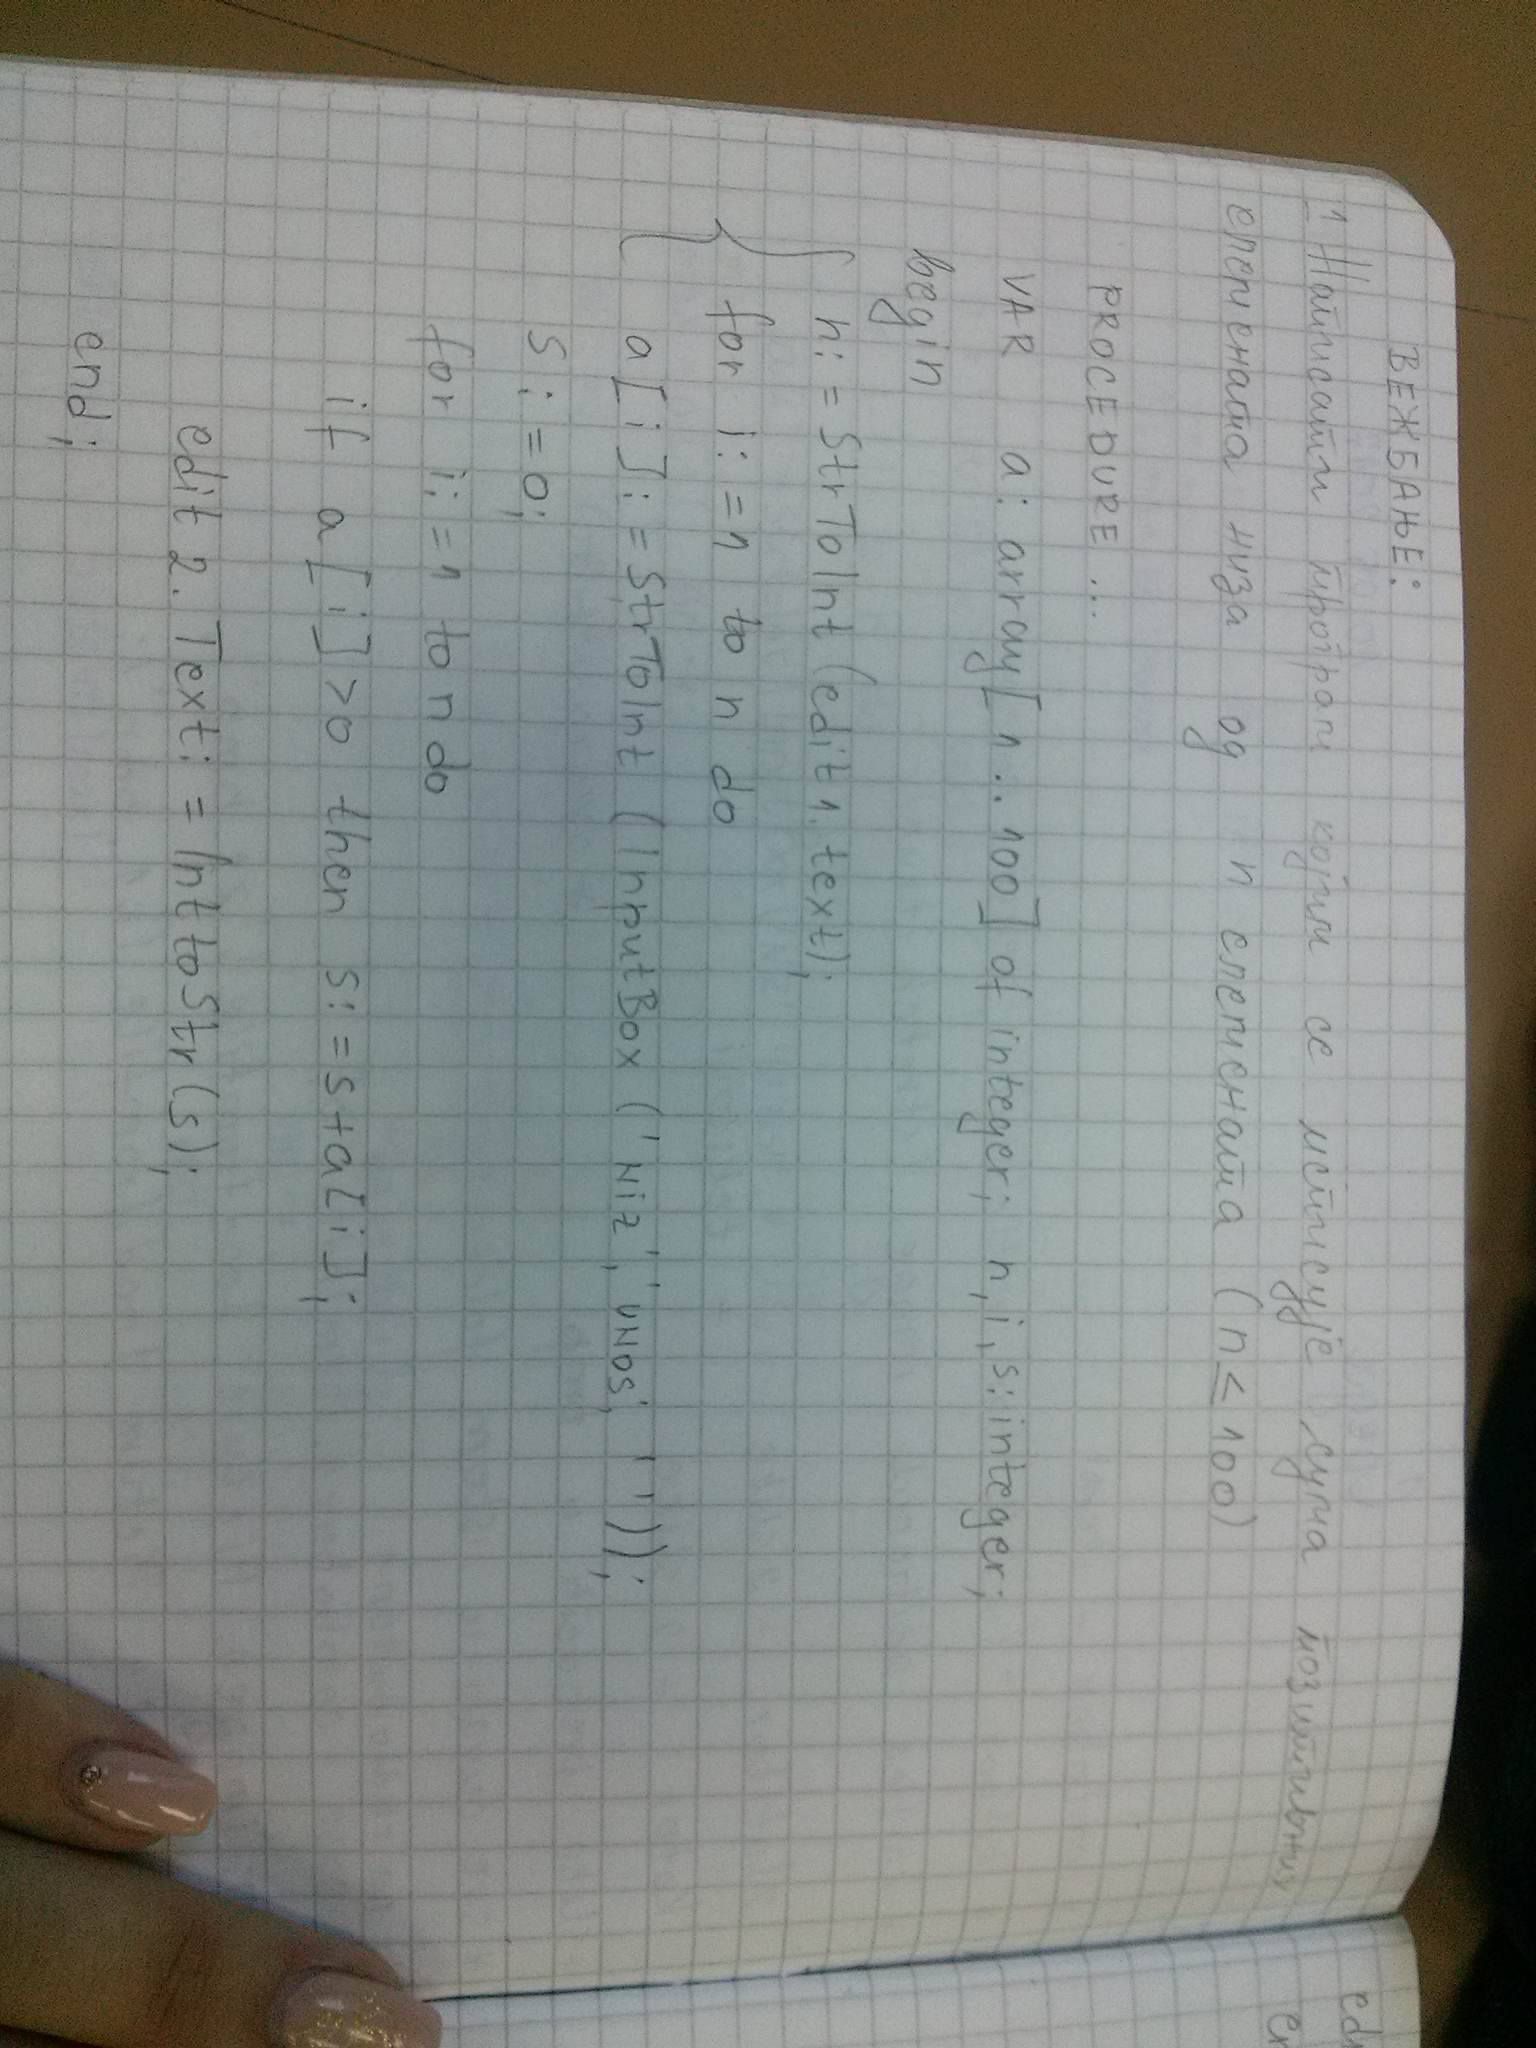 ВЕЖБАЊЕ:
1 Написати програм којим се исписује сума позитивних
елемената низа од n елемената (n ≤ 100)
PROCEDURE ...
VAR a: array[1..100] of integer; n, i, s: integer;
begin
n:=StrToInt(edit1.text);
for i:=1 to n do
a[i]:=StrToInt(InputBox('Niz','unos',' '));
S:=0;
for i:=1 to n do
if a[i]>0 then s:=s+a[i];
edit2.Text:=InttoStr(s);
end;